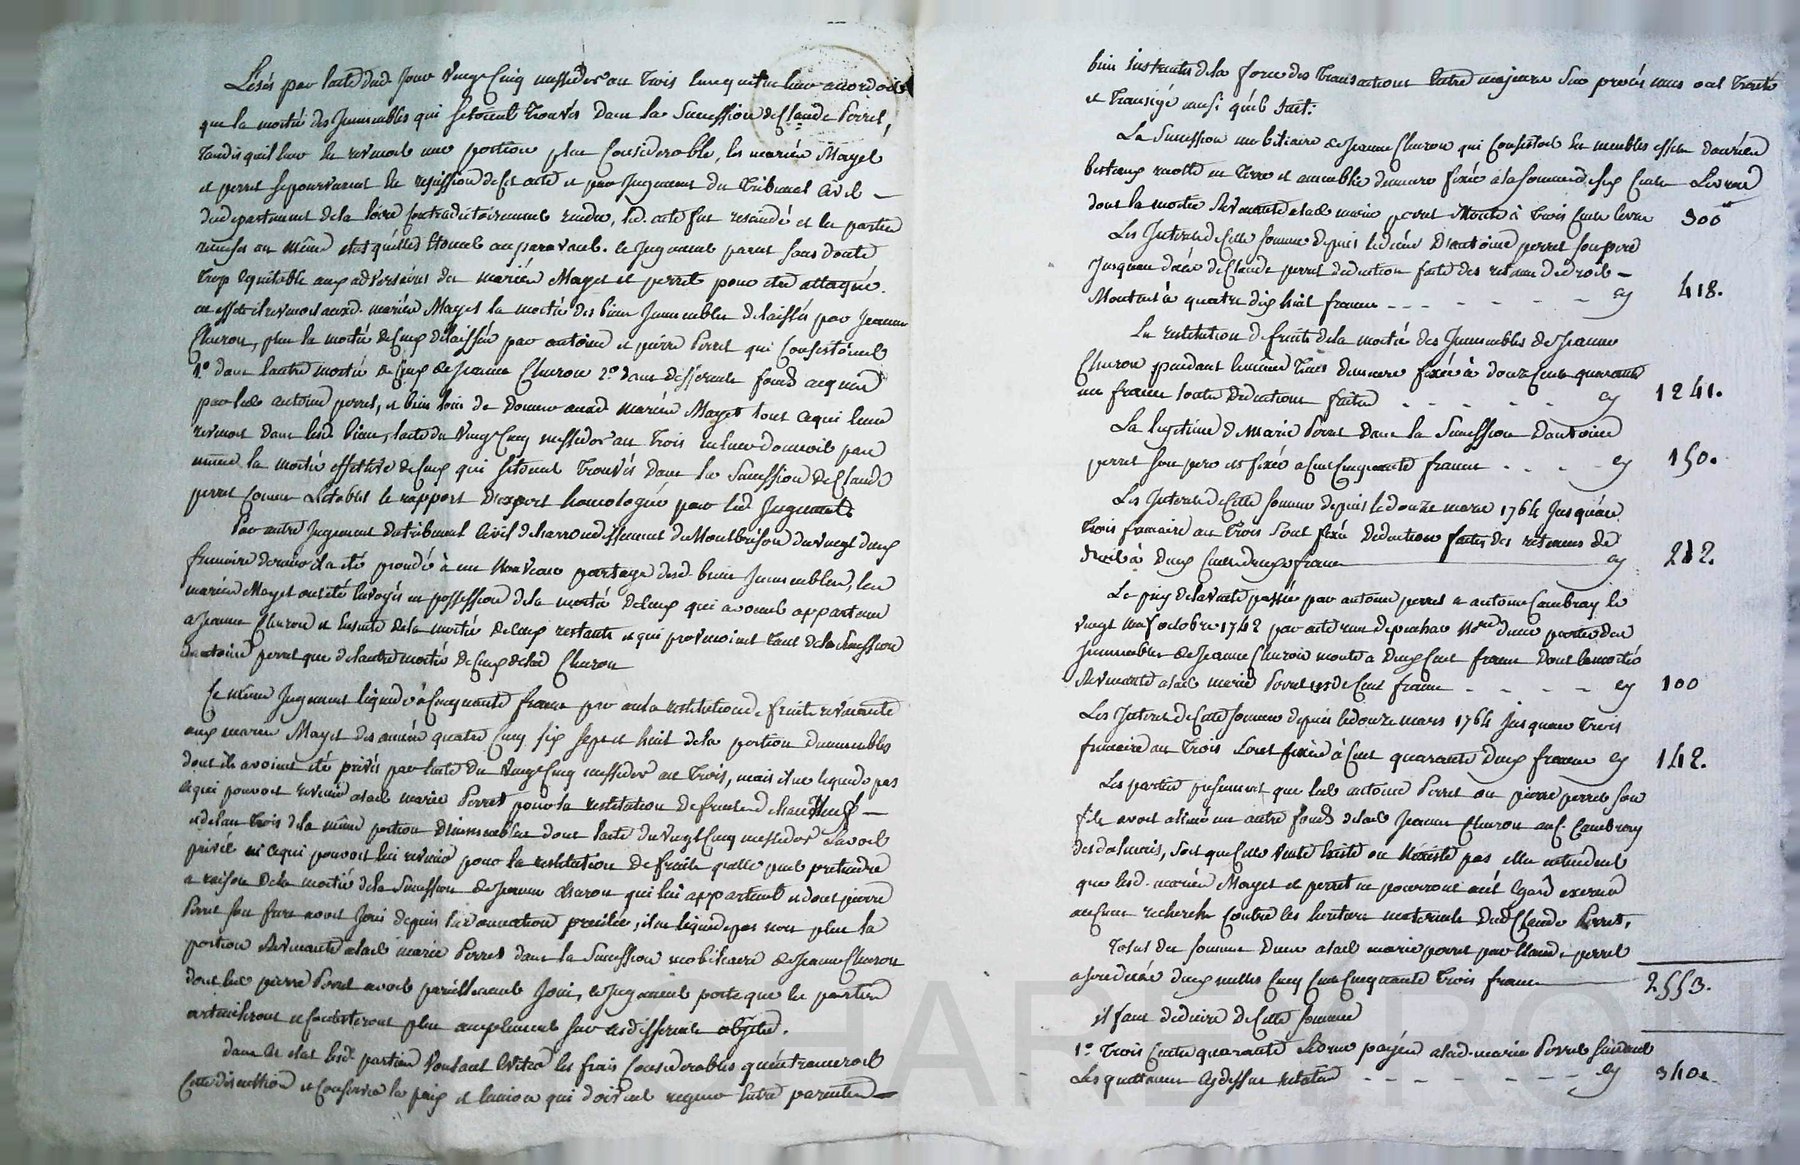 Lésés par l'acte dud jour vingt cinq messidor an trois lequel ne leur accordoit
que la moitié des Immeubles qui s'etoient trouvés dans la Succession de Claude Perret,
tandis qu'il leur en revenoit une portion plus Considerable, les mariés Mayet
et perret se pourvurent en rescission de cet acte et par Jugement du Tribunal Civil
du departement de la loire contradictoirement rendu, led. acte fut rescindé et les parties
remises au même etat qu'elles étoient au paravant. ce Jugement parut sans doute
trop équitable aux adversaires des mariés Mayet et perret pour être attaqué.
en effet il revenoit auxd. mariés Mayet la moitié des biens Immeubles delaissés par Jeanne
Charon, plus la moitié de ceux delaissés par antoine et pierre Perret qui Consistoient
1.° dans l'autre moitié de ceux de Jeanne Charon 2.° dans differents fonds acquis
par led. antoine perret, et bien loin de donner auxd mariés Mayet tout ce qui leur
revenoit dans lesd. biens, l'acte du vingt cinq messidor an trois ne leur donnoit pas
même la moitié effective de ceux qui s'etoient trouvés dans la Succession de Claude
perret comme l'etablit le rapport d'expert homologué par led Jugement
Par autre Jugement du tribunal Civil de l'arrondissement de Montbrison du vingt deux
frimaire dernier il a été procédé à un nouveau partage desd biens Immeubles, les
mariés Mayet ont été envoyés en possession de la moitié de ceux qui avoient appartenu
a Jeanne Charon et Ensuite de la moitié de ceux restants et qui provenoient tant de la Succession
d'antoine perret que de l'autre moitié de ceux de lad Charon
Ce même Jugement liquide à Cinquante francs par an la restitution de fruits revenante
aux mariés Mayet des années quatre Cinq six sept et huit de la portion d'immeubles
dont ils avoient été privés par l'acte du vingt Cinq messidor an trois, mais il ne liquide pas
ce qui pouvoit revenir a lad. marie Perret pour la restitution de fruits
et de l'an trois de la même portion d'immeubles dont l'acte du vingt cinq messidor l'avoit
privée ni ce qui pouvoit lui revenir pour la restitution de fruits qu'elle peut prétendre
a raison de la moitié de la Succession de Jeanne charon qui lui appartenoit et dont pierre
Perret son frere avoit Joui depuis la donation precitée, il ne liquide pas non plus la
portion Revenante a lad. marie Perret dans la Succession mobiliaire de Jeanne Charon
dont led. pierre Perret avoit pareillement Joui, le Jugement porte que les parties
articuleront et contesteront plus amplement sur ces differents objets.
dans cet etat lesd. parties voulant éviter les frais Considerables qu'entraineroit
Cette discussion et Conserver la paix et l'union qui doivent regner Entre parents
bien instruites de la force des transactions Entre majeurs sur procès mues ont traité
et transigé ainsi qu'il suit:
La Succession mobiliaire de Jeanne Charon qui Consistoit en meubles effets denrées
bestiaux recolte en terre et ameublés demeure fixée à la somme de six Cents Livres
dont la moitié Revenante a lad marie perret Monte à trois Cents livres 300
Les Interets de Cette somme depuis le décès d'antoine perret son pere
Jusqu'au décès de Claude perret deduction faite des retenues de droit
Montent à quatre cent dix huit francs - - - - - - - cy 418.
La restitution de fruits de la moitié des Immeubles de Jeanne
Charon pendant le même tems demeure fixée à douze Cents quarante
un francs toutes deductions faites - - - - - - cy 1241.
La legitime de Marie Perret dans la Succession d'antoine
perret son pere est fixée a Cent Cinquante francs - - - - cy 150.
Les Interets de Cette somme depuis le douze mars 1764 Jusqu'au
trois frimaire an trois sont fixés deduction faites des retenues de
droit à deux Cents douze francs cy 212.
Le prix de la vente passée par antoine perret a antoine Cambray le
vingt neuf octobre 1742 par acte reçu depuchau N.re d'une partie des
Immeubles de Jeanne Charon monte a deux Cent francs dont la moitié
Revenante a lad. marie Perret est de Cent francs - - - - cy 100
Les Interets de Cette somme depuis le douze mars 1764 Jusqu'au trois
frimaire an trois sont fixés à Cent quarante deux francs cy 142.
Les parties presument que led. antoine Perret ou pierre perret son
fils avoit aliené un autre fonds de lad. Jeanne Charon aud. Cambray
des dalmais, soit que Cette vente Existe ou n'existe pas elles entendent
que lesd. mariés Mayet et perret ne pourront a cet Egard exercer
aucune recherche Contre les heritiers maternels dud Claude Perret,
Total des sommes dues a lad. marie perret par Claude perret
a son decès deux milles Cinq Cents Cinquante trois francs 2553.
il faut deduire de Cette somme
1.° Trois Cents quarante livres payées a lad. marie Perret suivant
Les quittances Cy dessus relatées - - - - - - - - cy 340.